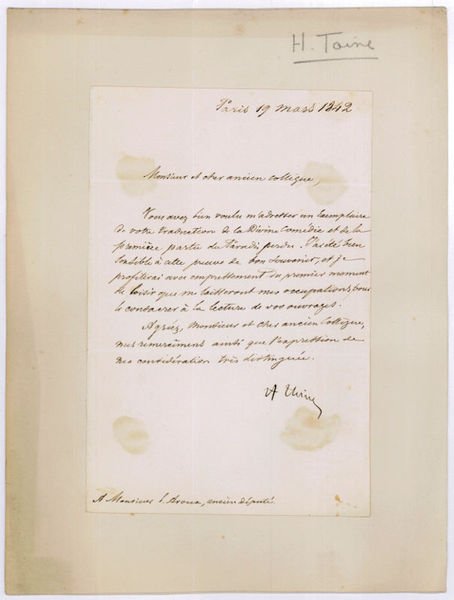 H. Taine
Paris 19 mars 1842
Monsieur et cher ancien collègue,
Vous avez bien voulu m'adresser un Exemplaire
de votre traduction de la Divine Comédie et de la
première partie du Paradis perdu. J'ai été bien
sensible à cette preuve de bon souvenir, et je
profiterai avec empressement du premier moment
de loisir que me laisseront mes occupations, pour
le consacrer à la lecture de vos ouvrages.
Agréez, Monsieur et cher ancien Collègue,
mes remerciments ainsi que l'expression de
ma considération très distinguée.
A Monsieur E. Aroux, ancien député.